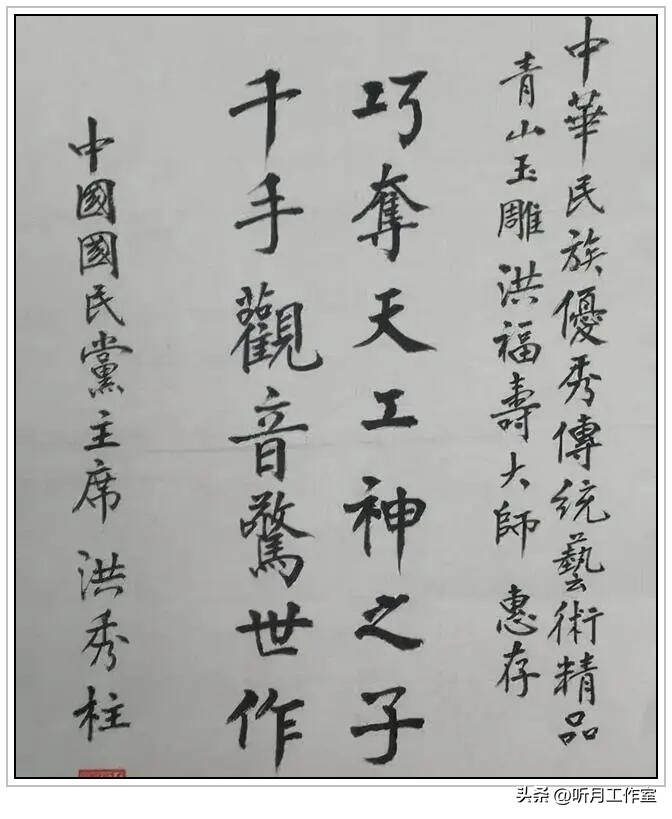 中華民族優秀傳統藝術精品
青山玉雕洪福壽大師 惠存
巧奪天工神之子
千手觀音驚世作
中國國民黨主席 洪秀柱
头条 @听月工作室